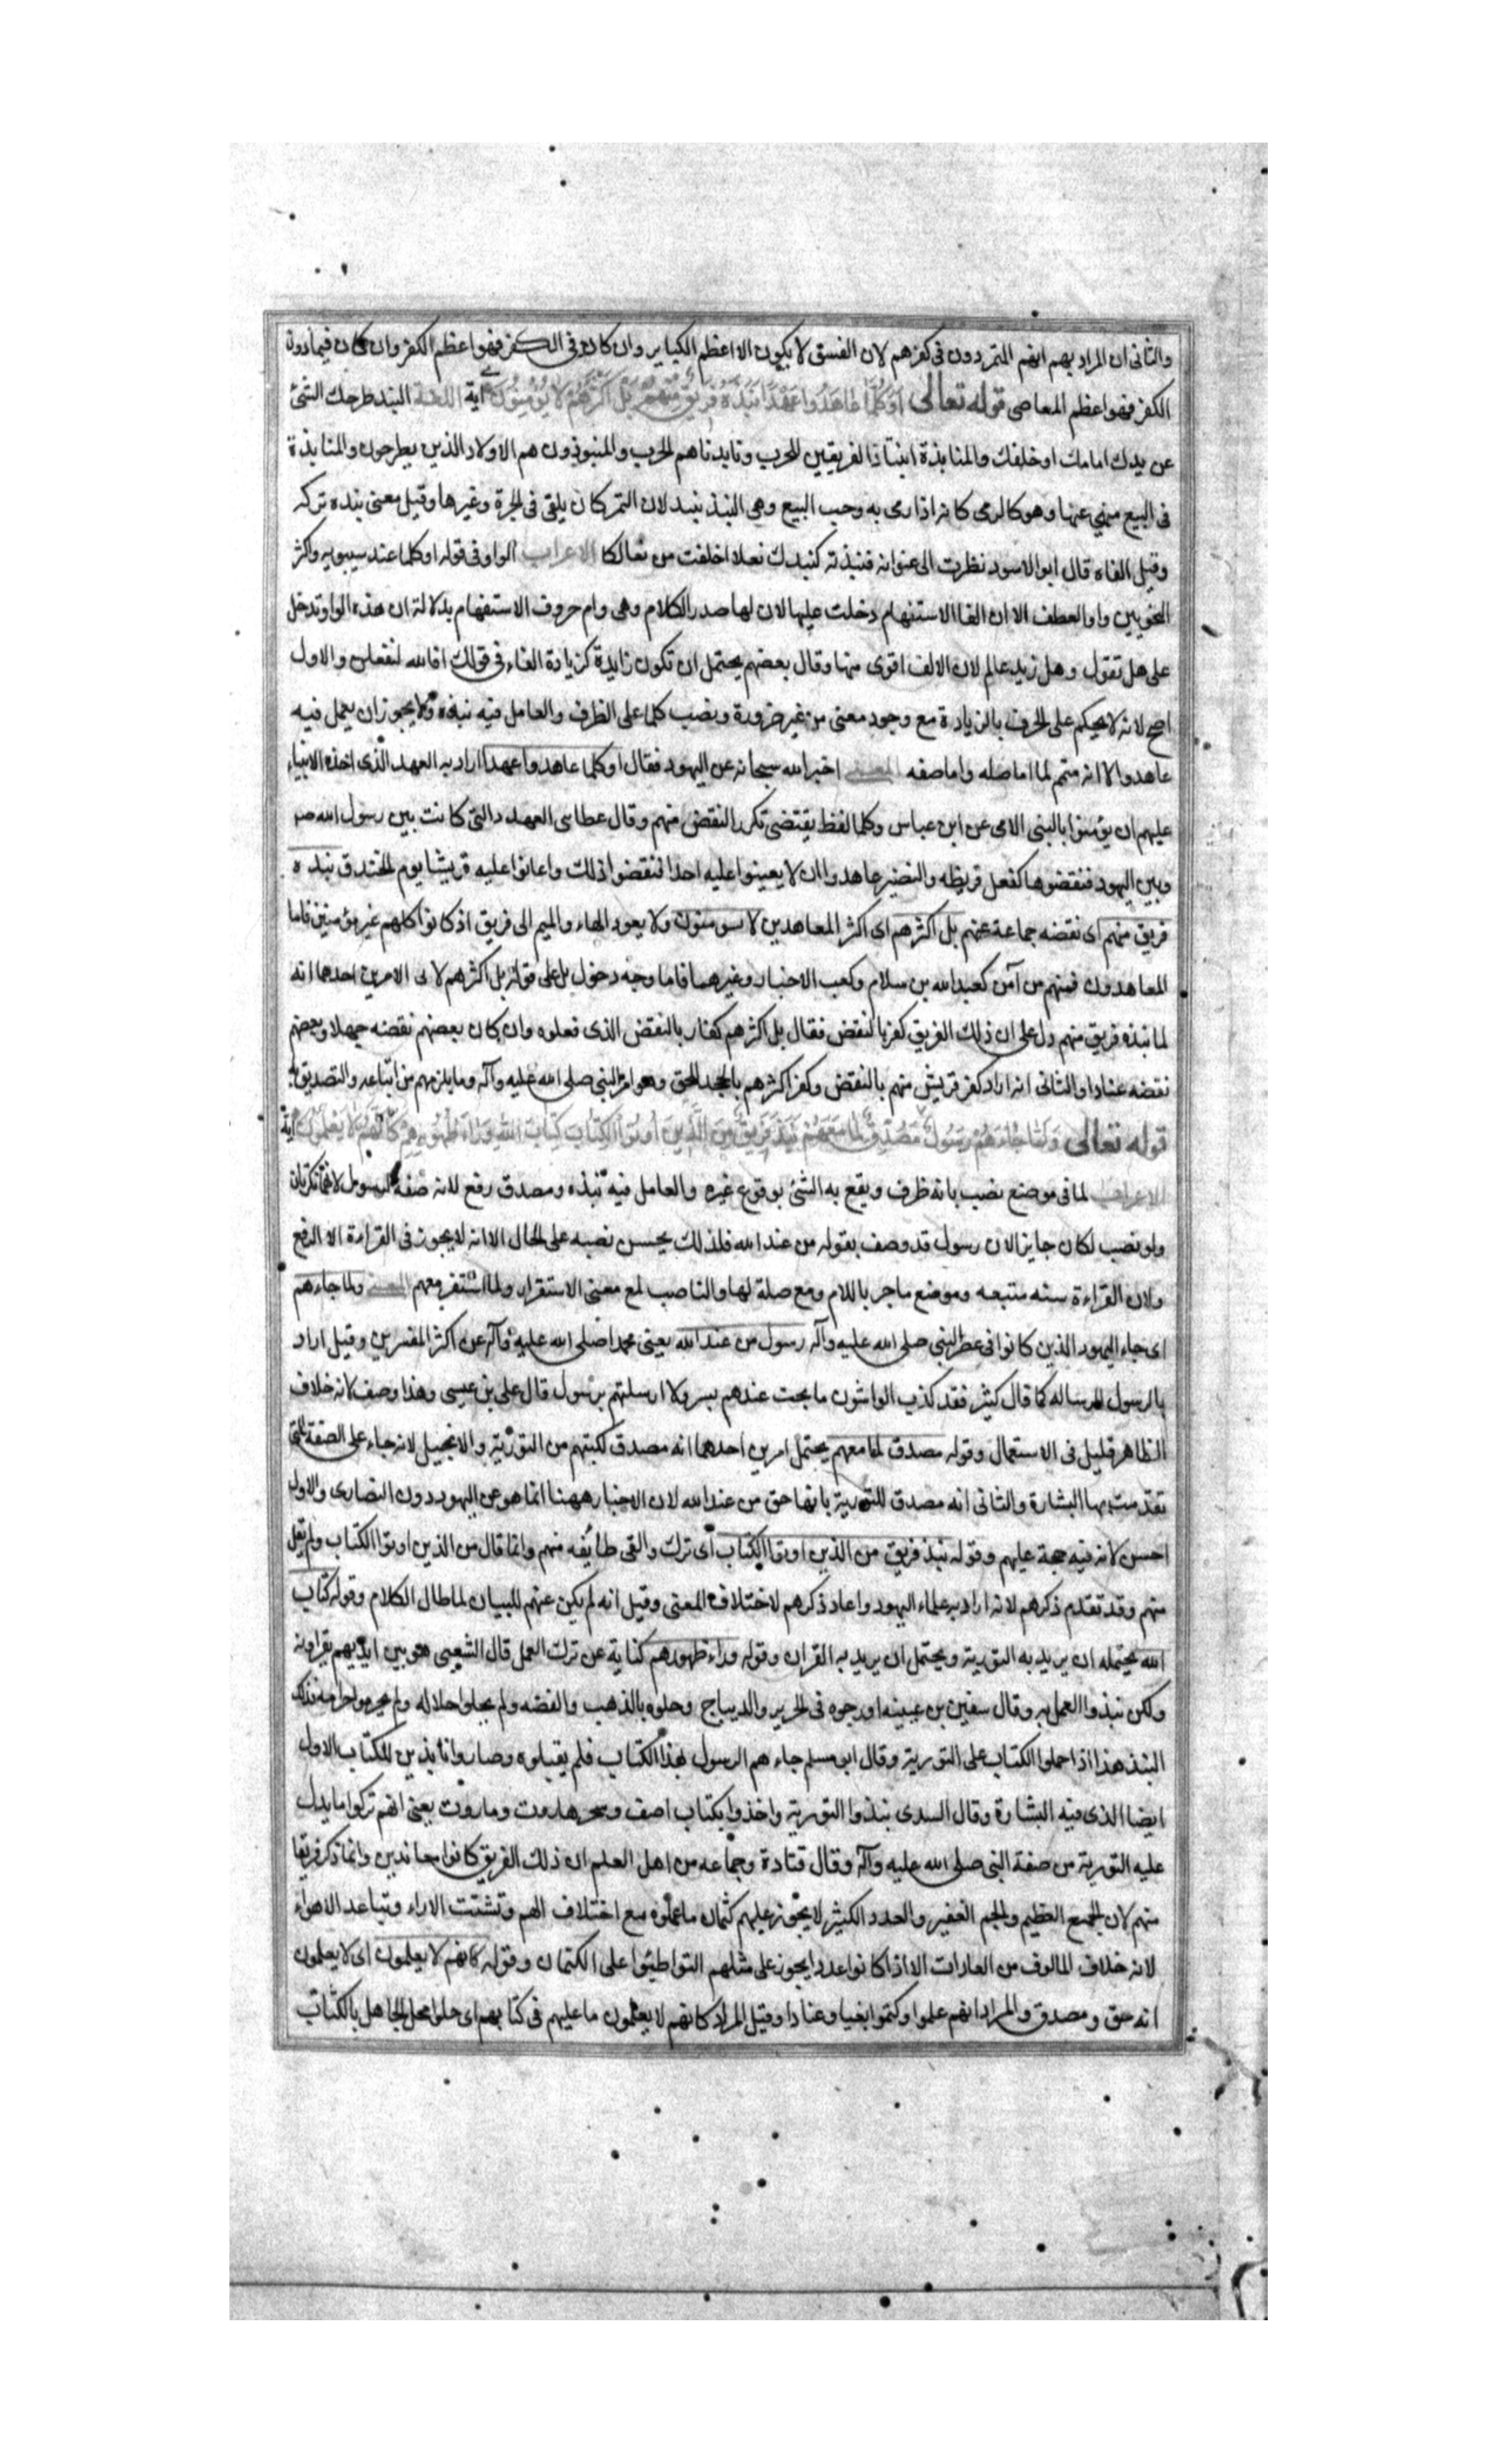 والثانی ان المراد بهم انهم المتمردون فی کفرهم لان الفسق لا یکون الا اعظم الکبایر وان کان فی الکفر فهو اعظم الکفر وان کان فیما دون
الکفر فهو اعظم المعاصی قوله تعالی اَوَکُلَّمٰا عٰاهَدُوا عَهْدًا نَبَذَهُ فَرِیقٌ مِنْهُمْ بَلْ اَکْثَرُهُمْ لاٰ یُؤْمِنُونَ آیة اللغة النبذ طرحک الشئ
عن یدک امامک او خلفک والمنابذة انتباذ الفریقین للحرب ونابذناهم الحرب والمنبوذون هم الاولاد الذین یطرحون والمنابذة
فی البیع منهی عنها وهو کالرمی کانه اذا رمی به وجب البیع وهی النبذ نبیذ لان التمر کان یلقی فی الجرة وغیرها وقیل معنی نبذه ترکه
وقیل القاه قال ابو الاسود نظرت الی عنوانه فنبذته کنبذک نعلا اخلقت من نعالکا الاعراب الواو فی قوله اوکلما عند سیبویه واکثر
النحویین واو العطف الا ان الف الاستفهام دخلت علیها لان لها صدر الکلام وهی وام حروف الاستفهام بدلالة ان هذه الواو تدخل
علی هل تقول وهل زید عالم لان الالف اقوی منها وقال بعضهم یحتمل ان تکون زایدة کزیادة الفاء فی قولک افالله لتفعلن والاول
اصح لانه لا یحکم علی الحرف بالزیادة مع وجود معنی من غیر ضرورة ونصب کلما علی الظرف والعامل فیه نبذه ولا یجوز ان یعمل فیه
عاهدوا لانه متمم لما اما صله واما صفه المعنی اخبر الله سبحانه عن الیهود فقال اوکلما عاهدوا عهدا اراد به العهد الذی اخذه الانبیاء
علیهم ان یؤمنوا بالنبی الامی عن ابن عباس وکلما لفظ یقتضی تکرر النقض منهم وقال عطا هی العهود التی کانت بین رسول الله ص
وبین الیهود فنقضوها کفعل قریظه والنضیر عاهدوا ان لا یعینوا علیه احدا فنقضوا ذلک واعانوا علیه قریشا یوم الخندق نبذه
فریق منهم ای نقضه جماعة منهم بل اکثرهم ای اکثر المعاهدین لا یومنون ولا یعود الهاء والمیم الی فریق اذ کانوا کلهم غیر مؤمنین فاما
المعاهدون فمنهم من آمن کعبد الله بن سلام وکعب الاحبار وغیرهما فاما وجه دخول بل علی قوله بل اکثرهم لا الامرین احدهما انه
لما نبذه فریق منهم دل علی ان ذلک الفریق کفر بالنقض فقال بل اکثرهم کفار بالنقض الذی فعلوه وان کان بعضهم نقضه جهلا وبعضهم
نقضه عنادا والثانی انه اراد کفر فریق منهم بالنقض وکفر اکثرهم بالجحد للحق وهو امر النبی صلی الله علیه وآله وما یلزمهم من اتباعه والتصدیق به
قوله تعالی وَلَمّٰا جٰاءَهُمْ رَسُولٌ مُصَدِّقٌ لِمٰا مَعَهُمْ نَبَذَ فَرِیقٌ مِنَ الَّذِینَ اُوتُوا الْکِتٰابَ کِتٰابَ اللهِ وَرٰاءَ ظُهُورِهِمْ کَاَنَّهُمْ لاٰ یَعْلَمُونَ آیة
الاعراب لما فی موضع نصب بانه ظرف ویقع به الشئ بوقوع غیره والعامل فیه نبذه ومصدق رفع لانه صفة لرسول لانهما نکرتان
ولو نصب لکان جایزا لان رسول قد وصف بقوله من عند الله فلذلک یحسن نصبه علی الحال الا انه لا یجوز فی القراءة الا الرفع
ولان القراءة سنه متبعه وموضع ما جر باللام ومع صلة لها والناصب لمع معنی الاستقرار ولما استقر معهم المعنی ولما جاءهم
ای جاء الیهود الذین کانوا فی عصر النبی صلی الله علیه وآله رسول من عند الله یعنی محمدا صلی الله علیه وآله عن اکثر المفسرین وقیل اراد
بالرسول الرساله کما قال کثیر فقد کذب الواشون ما بحت عندهم بسر ولا ارسلتهم برسول قال علی بن عیسی وهذا وصف لانه خلاف
الظاهر قلیل فی الاستعمال وقوله مصدق لما معهم یحتمل امرین احدهما انه مصدق لکتبهم من التوریة والانجیل لانه جاء علی الصفة التی
تقدمت بها البشارة والثانی انه مصدق للتوریة بانها حق من عند الله لان الاخبار ههنا انما هو عن الیهود دون النصاری والاول
احسن لانه فیه حجة علیهم وقوله نبذ فریق من الذین اوتوا الکتاب ای ترک والقی طایفه منهم وانما قال من الذین اوتوا الکتاب ولم یقل
منهم وقد تقدم ذکرهم لانه اراد به علماء الیهود واعاد ذکرهم لاختلاف المعنی وقیل انه لم یکن عنهم للبیان لما طال الکلام وقوله کتاب
الله یحتمله ان یرید به التوریة ویحتمل ان یرید به القران وقوله وراء ظهورهم کنایة عن ترک العمل قال الشعبی هو بین ایدیهم یقراونه
ولکن نبذوا العمل به وقال سفین بن عیینه ادرجوه فی الحریر والدیباج وحلوه بالذهب والفضه ولم یحلوا حلاله ولم یحرموا حرامه فذلک
النبذ هذا اذا حملوا الکتاب علی التوریة وقال ابو مسلم جاءهم الرسول بهذا الکتاب فلم یقبلوه وصاروا نابذین للکتاب الاول
ایضا الذی فیه البشارة وقال السدی نبذوا التوریة واخذوا بکتاب اصف وسحر هاروت وماروت یعنی انهم ترکوا ما یدل
علیه التوریة من صفة النبی صلی الله علیه وآله وقال قتادة وجماعه من اهل العلم ان ذلک الفریق کانوا معاندین وانما ذکر فریقا
منهم لان الجمع العظیم والجم الغفیر والعدد الکثیر لا یجوز علیهم کتمان ما علموه مع اختلاف الهم وتشتت الاراء وتباعد الاهواء
لانه خلاف المالوف من العادات الا اذا کانوا عددا یجوز علی مثلهم التواطئوا علی الکتمان وقوله کانهم لا یعلمون ای لا یعلمون
انه حق ومصدق والمراد انهم علموا وکتموا بغیا وعنادا وقیل المراد کانهم لا یعلمون ما علیهم فی کتابهم ای حلوا محل الجاهل بالکتاب